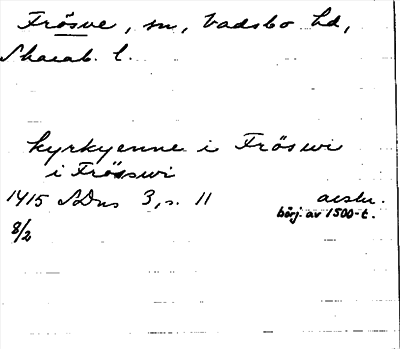 Frösve, sn, Vadsbo hd,
Skarab. l.
kyrkyenne i Fröswi
i Fröswi
1415 SDns 3, s. 11 avskr.
börj. av 1500-t.
8/2